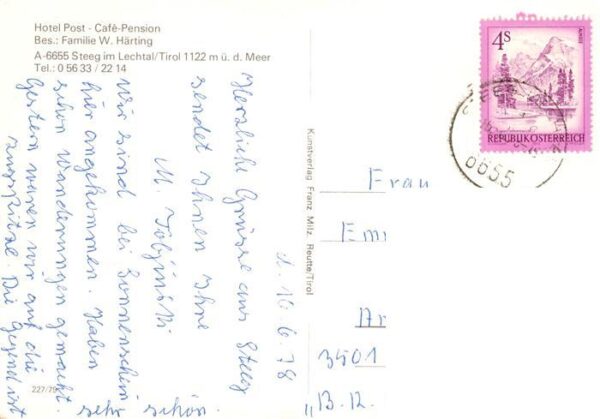 Hotel Post - Café-Pension
Bes.: Familie W. Härting
A-6655 Steeg im Lechtal/Tirol 1122 m ü. d. Meer
Tel.: 0 56 33 / 22 14
Herzliche Grüsse aus Steeg
sendet Ihnen Ihre
M.
Wir sind bei Sonnenschein
hier angekommen. Haben
schon Wanderungen gemacht.
Gestern waren wir auf die
Zugspitze. Die Gegend ist
sehr schön.
d. 10.6.78
Kunstverlag Franz Milz, Reutte/Tirol
Frau
Emi
Ar
3401
13.12.
227/79
4S
REPUBLIK ÖSTERREICH
6655